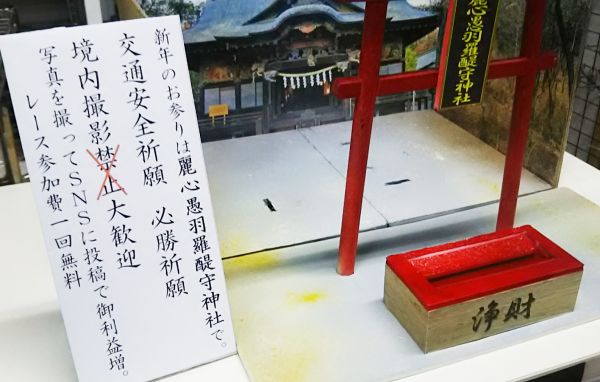 新年のお参りは麗心愚羽羅醍守神社で。
交通安全祈願　必勝祈願
境内撮影禁止大歓迎
写真を撮ってSNSに投稿で御利益増。
レース参加費一回無料
麗心愚羽羅醍守神社
浄財